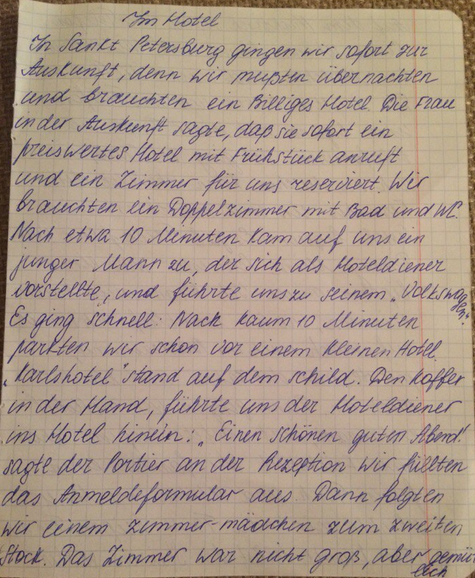 Im Hotel
In Sankt Petersburg gingen wir sofort zur
Auskunft, denn wir mußten übernachten
und brauchten ein Billiges Hotel. Die Frau
in der Auskunft sagte, daß sie sofort ein
preiswertes Hotel mit Frühstück anruft
und ein Zimmer für uns reserviert. Wir
brauchten ein Doppelzimmer mit Bad und WC.
Nach etwa 10 Minuten kam auf uns ein
junger Mann zu, der sich als Hoteldiener
vorstellte, und führte uns zu seinem „Volkswagen".
Es ging schnell. Nach kaum 10 Minuten
parkten wir schon vor einem kleinen Hotel.
„Karlshotel" stand auf dem schild. Den Koffer
in der Hand, führte uns der Hoteldiener
ins Hotel hinein: „Einen schönen guten Abend!"
sagte der Portier an der Rezeption wir füllten
das Anmeldeformular aus. Dann folgten
wir einem zimmer-mädchen zum zweiten
Stock. Das Zimmer war nicht groß, aber gemütlich